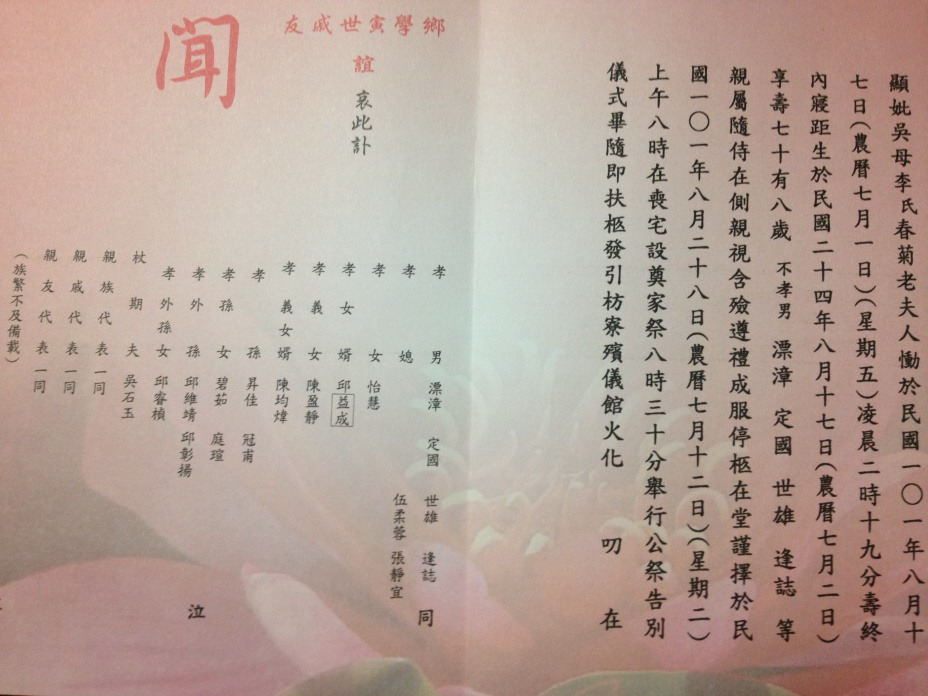 顯妣吳母李氏春菊老夫人慟於民國一〇一年八月十
七日(農曆七月一日)(星期五)凌晨二時十九分壽終
內寢距生於民國二十四年八月十七日(農曆七月二日)
享壽七十有八歲 不孝男 漂漳 定國 世雄 逢誌 等
親屬隨侍在側親視含殮遵禮成服停柩在堂謹擇於民
國一〇一年八月二十八日(農曆七月十二日)(星期二)
上午八時在喪宅設奠家祭八時三十分舉行公祭告別
儀式畢隨即扶柩發引枋寮殯儀館火化 叨 在
鄉學寅世戚友
誼 哀此訃
聞
孝男 漂漳 定國 世雄 逢誌 同
孝媳 伍柔蓉 張靜宜
孝女 怡慧
孝女婿 邱益成
孝義女 陳盈靜
孝義女婿 陳均煒
孝孫 昇佳 冠甫
孝孫女 碧茹 庭瑄
孝外孫 邱維靖 邱彰揚
孝外孫女 邱睿楨
杖期夫 吳石玉
泣
親族代表一同
親戚代表一同
親友代表一同
(族繁不及備載)